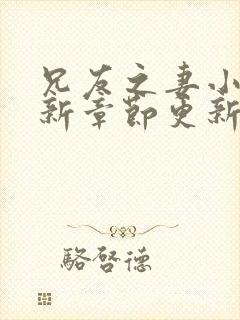 兄友之妻小
新章節更新
駱啓德